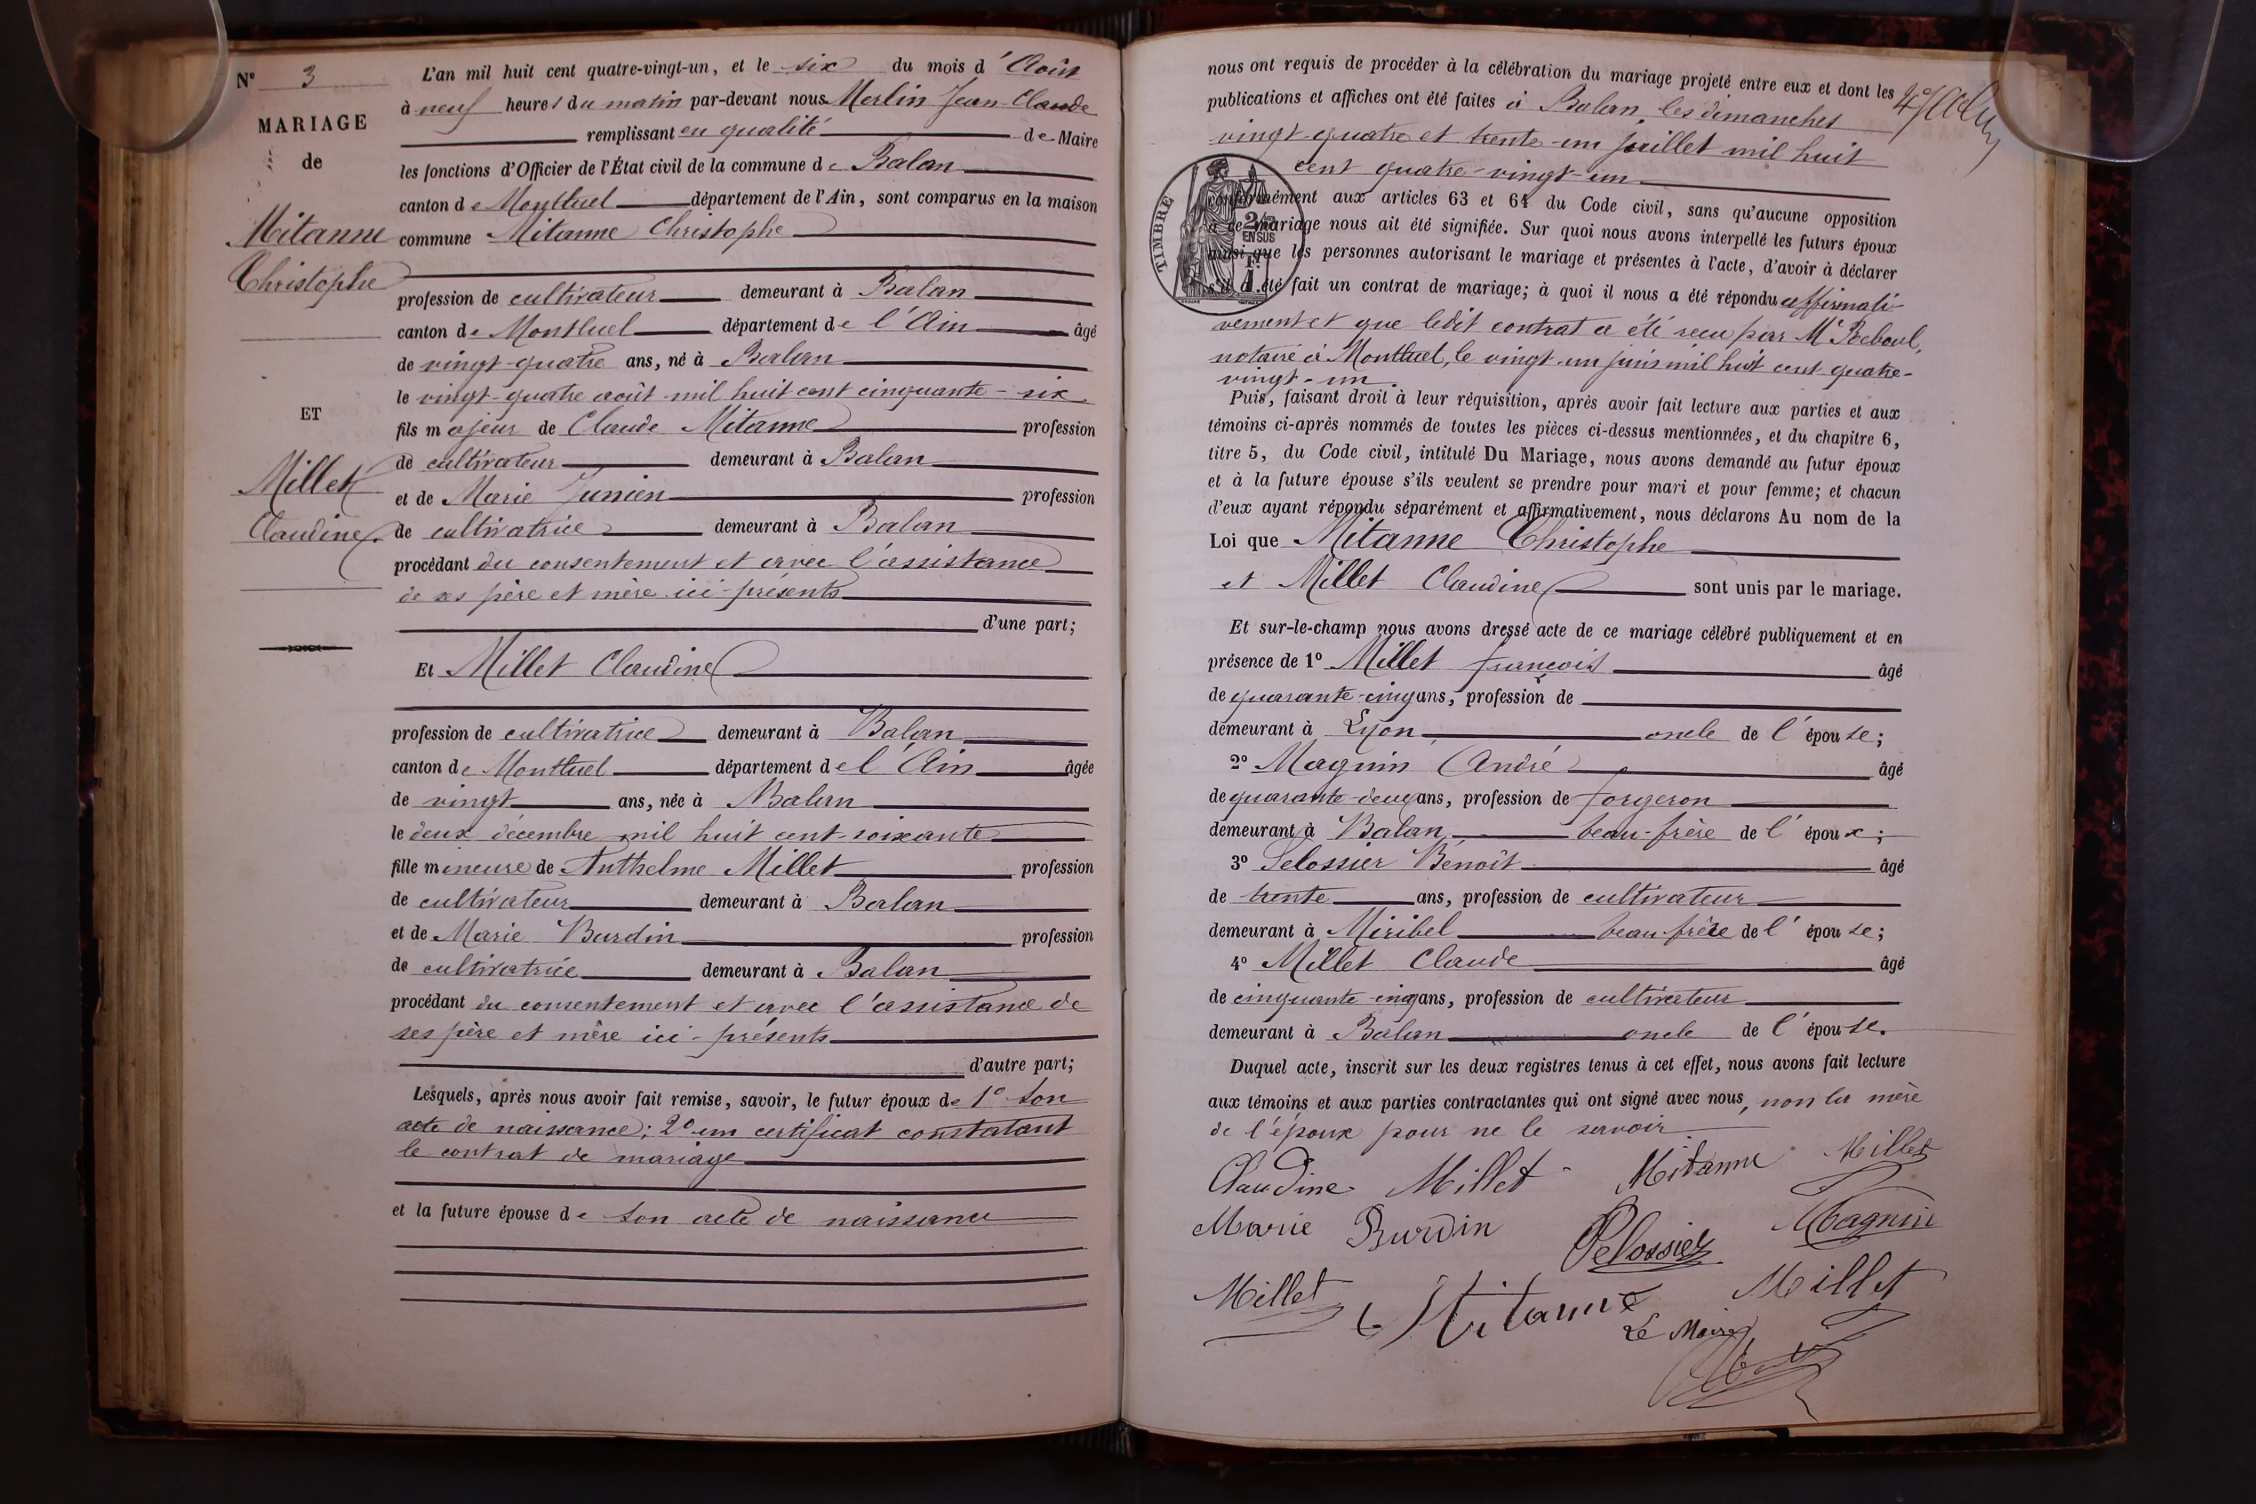 N° 3
MARIAGE
de
Mitanne
Christophe
ET
Millet
Claudine
L'an mil huit cent quatre-vingt-un, et le six du mois d'Août
à neuf heures du matin par-devant nous Merlin Jean Claude
remplissant en qualité de Maire
les fonctions d'Officier de l'État civil de la commune de Balan
canton de Montluel département de l'Ain, sont comparus en la maison
commune Mitanne Christophe
profession de cultivateur demeurant à Balan
canton de Montluel département de l'Ain âgé
de vingt-quatre ans, né à Balan
le vingt-quatre août mil huit cent cinquante-six
fils majeur de Claude Mitanne profession
de cultivateur demeurant à Balan
et de Marie Junien profession
de cultivatrice demeurant à Balan
procédant du consentement et avec l'assistance
de ses père et mère ici-présents
d'une part;
Et Millet Claudine
profession de cultivatrice demeurant à Balan
canton de Montluel département de l'Ain âgée
de vingt ans, née à Balan
le deux décembre mil huit cent-soixante
fille mineure de Anthelme Millet profession
de cultivateur demeurant à Balan
et de Marie Burdin profession
de cultivatrice demeurant à Balan
procédant du consentement et avec l'assistance de
ses père et mère ici-présents
d'autre part;
Lesquels, après nous avoir fait remise, savoir, le futur époux de 1° son
acte de naissance; 2° un certificat constatant
le contrat de mariage
et la future épouse de son acte de naissance
nous ont requis de procéder à la célébration du mariage projeté entre eux et dont les
publications et affiches ont été faites à Balan, les dimanches
vingt-quatre et trente-un juillet mil huit
cent quatre-vingt-un
TIMBRE
2/10
EN SUS
1 F.
conformément aux articles 63 et 64 du Code civil, sans qu'aucune opposition
à ce mariage nous ait été signifiée. Sur quoi nous avons interpellé les futurs époux
ainsi que les personnes autorisant le mariage et présentes à l'acte, d'avoir à déclarer
s'il a été fait un contrat de mariage; à quoi il nous a été répondu affirmati-
vement et que ledit contrat a été reçu par Me Reboul,
notaire à Montluel, le vingt-un juin mil huit cent quatre-
vingt-un.
Puis, faisant droit à leur réquisition, après avoir fait lecture aux parties et aux
témoins ci-après nommés de toutes les pièces ci-dessus mentionnées, et du chapitre 6,
titre 5, du Code civil, intitulé Du Mariage, nous avons demandé au futur époux
et à la future épouse s'ils veulent se prendre pour mari et pour femme; et chacun
d'eux ayant répondu séparément et affirmativement, nous déclarons Au nom de la
Loi que Mitanne Christophe
et Millet Claudine sont unis par le mariage.
Et sur-le-champ nous avons dressé acte de ce mariage célébré publiquement et en
présence de 1° Millet françois âgé
de quarante-cinq ans, profession de
demeurant à Lyon oncle de l'épouse;
2° Magnin André âgé
de quarante-deux ans, profession de forgeron
demeurant à Balan beau-frère de l'époux;
3° Pelossier Benoît âgé
de trente ans, profession de cultivateur
demeurant à Miribel beau-frère de l'épouse;
4° Millet Claude âgé
de cinquante-cinq ans, profession de cultivateur
demeurant à Balan oncle de l'épouse.
Duquel acte, inscrit sur les deux registres tenus à cet effet, nous avons fait lecture
aux témoins et aux parties contractantes qui ont signé avec nous, non la mère
de l'époux pour ne le savoir
Claudine Millet Mitanne Millet
Marie Burdin Pelossier Magnin
Millet Mitanne Millet
Le Maire